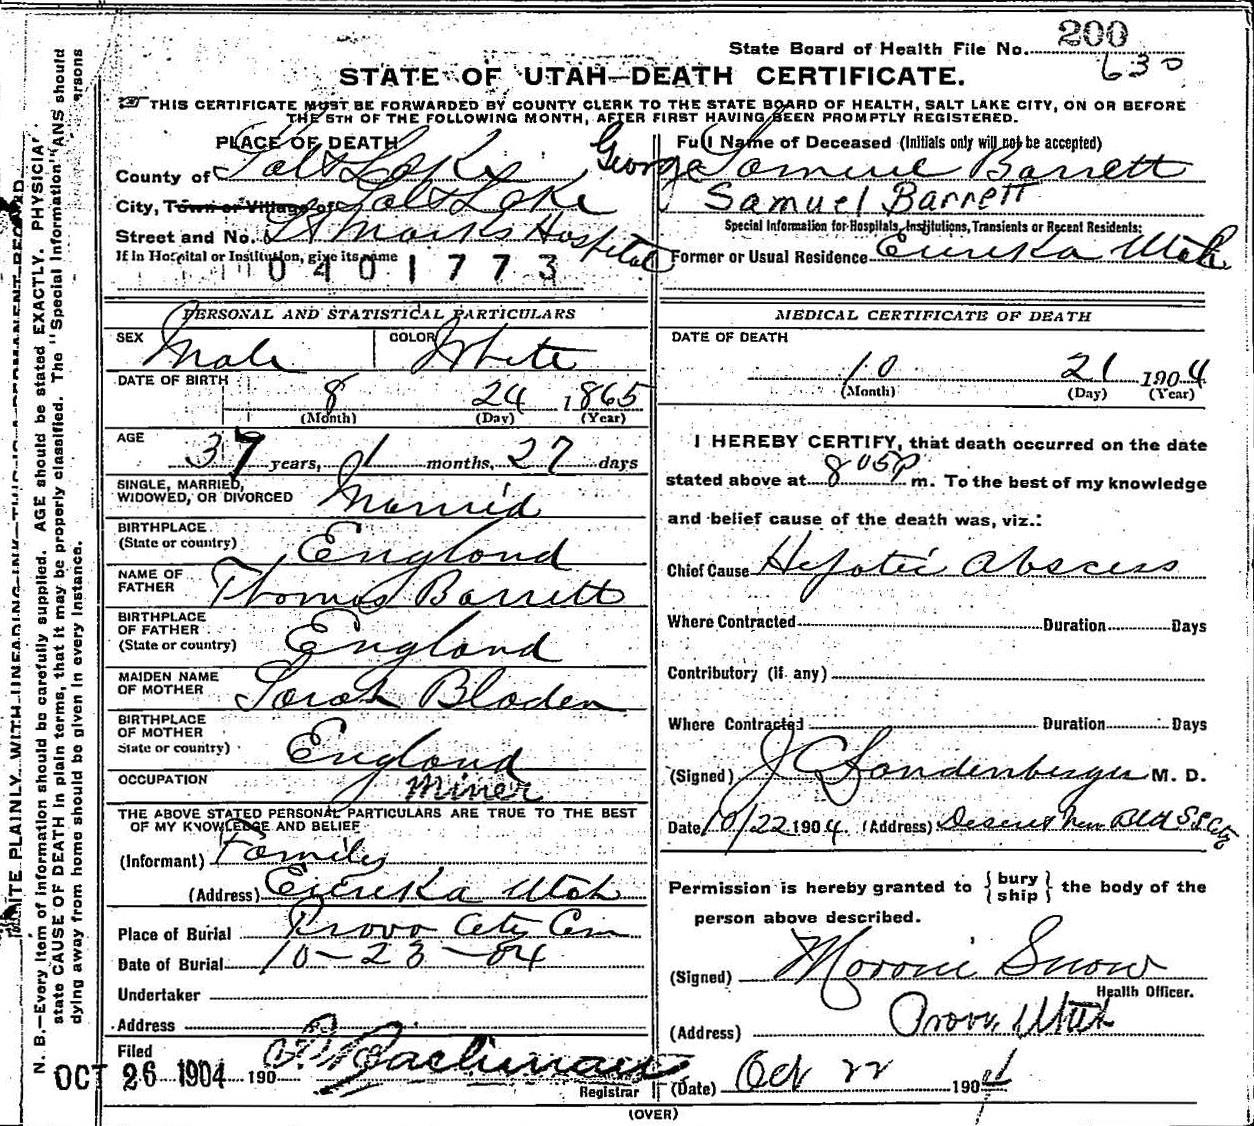 State Board of Health File No. 200
630
STATE OF UTAH—DEATH CERTIFICATE.
THIS CERTIFICATE MUST BE FORWARDED BY COUNTY CLERK TO THE STATE BOARD OF HEALTH, SALT LAKE CITY, ON OR BEFORE
THE 5TH OF THE FOLLOWING MONTH, AFTER FIRST HAVING BEEN PROMPTLY REGISTERED.
PLACE OF DEATH
County of Salt Lake
City, Town or Village of Salt Lake
Street and No. St Marks Hospital
If in Hospital or Institution, give its name
0401773
Full Name of Deceased (Initials only will not be accepted)
George Samuel Barrett
Samuel Barrett
Special Information for Hospitals, Institutions, Transients or Recent Residents:
Former or Usual Residence Eureka Utah
PERSONAL AND STATISTICAL PARTICULARS
SEX Male COLOR White
DATE OF BIRTH 8 24 1865
(Month) (Day) (Year)
AGE 39 years, 1 months, 27 days
SINGLE, MARRIED,
WIDOWED, OR DIVORCED Married
BIRTHPLACE
(State or country) England
NAME OF
FATHER Thomas Barrett
BIRTHPLACE
OF FATHER
(State or country) England
MAIDEN NAME
OF MOTHER Sarah Bladen
BIRTHPLACE
OF MOTHER
State or country) England
OCCUPATION Miner
THE ABOVE STATED PERSONAL PARTICULARS ARE TRUE TO THE BEST
OF MY KNOWLEDGE AND BELIEF
(Informant) Family
(Address) Eureka Utah
Place of Burial Provo City Cem
Date of Burial 10-23-04
Undertaker
Address
Filed
OCT 26 1904 190
Registrar
MEDICAL CERTIFICATE OF DEATH
DATE OF DEATH
10 21 1904
(Month) (Day) (Year)
I HEREBY CERTIFY, that death occurred on the date
stated above at 8 05 P m. To the best of my knowledge
and belief cause of the death was, viz.:
Chief Cause Hepatic Abscess
Where Contracted Duration Days
Contributory (if any)
Where Contracted Duration Days
(Signed) J C Landenberger M. D.
Date 10/22 1904. (Address) Deseret News Bld S L City
Permission is hereby granted to { bury ship } the body of the
person above described.
(Signed) Moroni Snow
Health Officer.
(Address) Provo, Utah
(Date) Oct 22 1904
(OVER)
WRITE PLAINLY WITH UNFADING INK—THIS IS A PERMANENT RECORD
N. B.—Every item of information should be carefully supplied. AGE should be stated EXACTLY. PHYSICIANS should
state CAUSE OF DEATH in plain terms, that it may be properly classified. The "Special Information" for persons
dying away from home should be given in every instance.